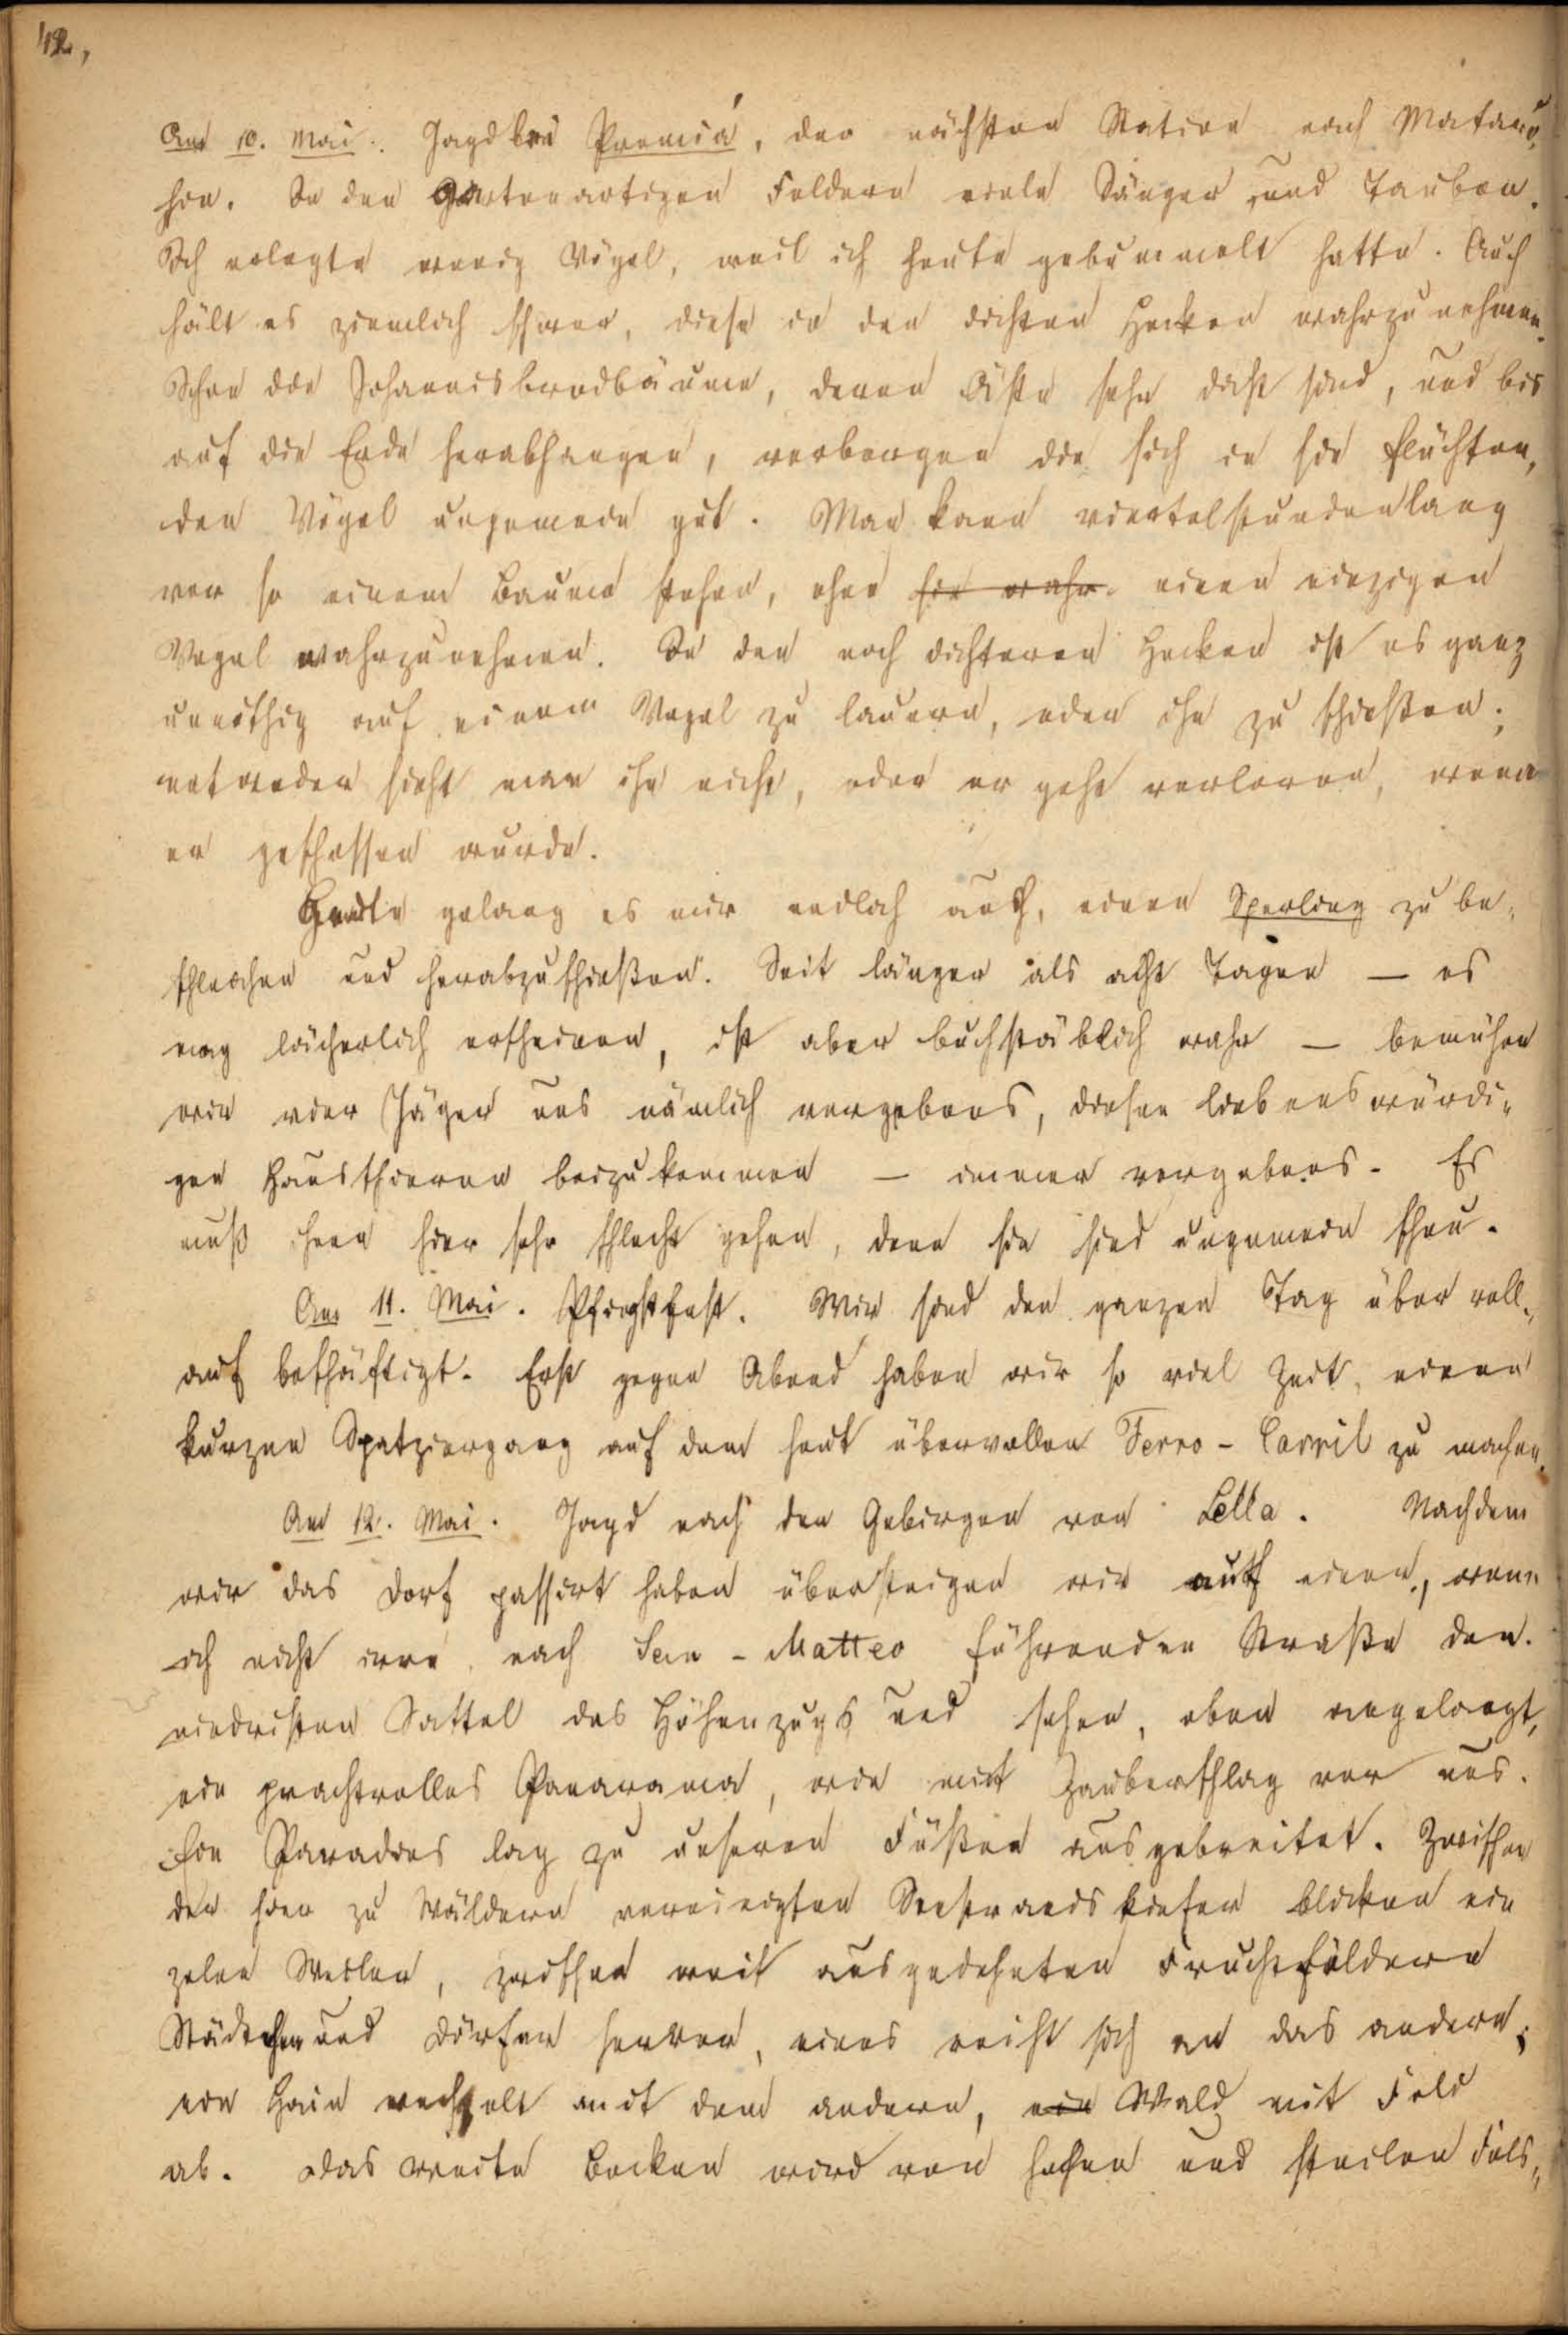 42,
Am 10. Mai. Jagd bei Premiá, der nächsten Station nach Mataró
hin. In den gartenartigen Feldern viele Sänger und Tauben.
Ich erlegte wenig Vögel, weil ich heute gebummelt hatte. Auch
hält es ziemlich schwer, diese in den dichten Hecken wahrzunehmen.
Schon die Johannisbrodbäume, deren Äste sehr dicht sind, und bis
auf die Erde herabhangen, verbergen die sich in sie flüchten-
den Vögel ungemein gut. Man kann viertelstundenlang
vor so einem Baume stehen, ohne sie wahr einen einzigen
Vogel wahrzunehmen. In den noch dichteren Hecken ist es ganz
unnöthig auf einem Vogel zu lauern, oder ihn zu schießen;
entweder sieht man ihn nicht, oder er geht verloren, wenn
er geschossen wurde.
Heute gelang es mir endlich auch, einen Sperling zu be-
schleichen und herabzuschießen. Seit länger als acht Tagen — es
mag lächerlich erscheinen, ist aber buchstäblich wahr — bemühen
wir vier Jäger uns nämlich vergebens, diesen liebenswürdi-
gen Hausthieren beizukommen — immer vergebens. Es
muß ihnen hier sehr schlecht gehen, denn sie sind ungemein scheu.
Am 11. Mai. Pfingstfest. Wir sind den ganzen Tag über voll-
auf beschäftigt. Erst gegen Abend haben wir so viel Zeit, einen
kurzen Spatziergang auf dem heut übervollen Ferro-Carril zu machen.
Am 12. Mai. Jagd nach den Gebirgen von Lella. Nachdem
wir das Dorf passirt haben übersteigen wir auf einen, wenn
ich nicht irre, nach San-Matteo führenden Straße den
niedristen Sattel des Höhenzugs und sehen, oben angelangt,
ein prachtvolles Panarama, wie mit Zauberschlag vor uns.
Ein Paradies lag zu unseren Füßen ausgebreitet. Zwischen
der hier zu Wäldern vereinigten Seestrandskiefer blicken ein
zelne Weiler, zwischen weit ausgedehnten Fruchtfeldern
Städtchen und Dörfer hervor, eines reiht sich an das andere;
ein Hain wechselt mit dem andern, ein Wald mit Feld
ab. Das weite Becken wird von hohen und steilen Fels-